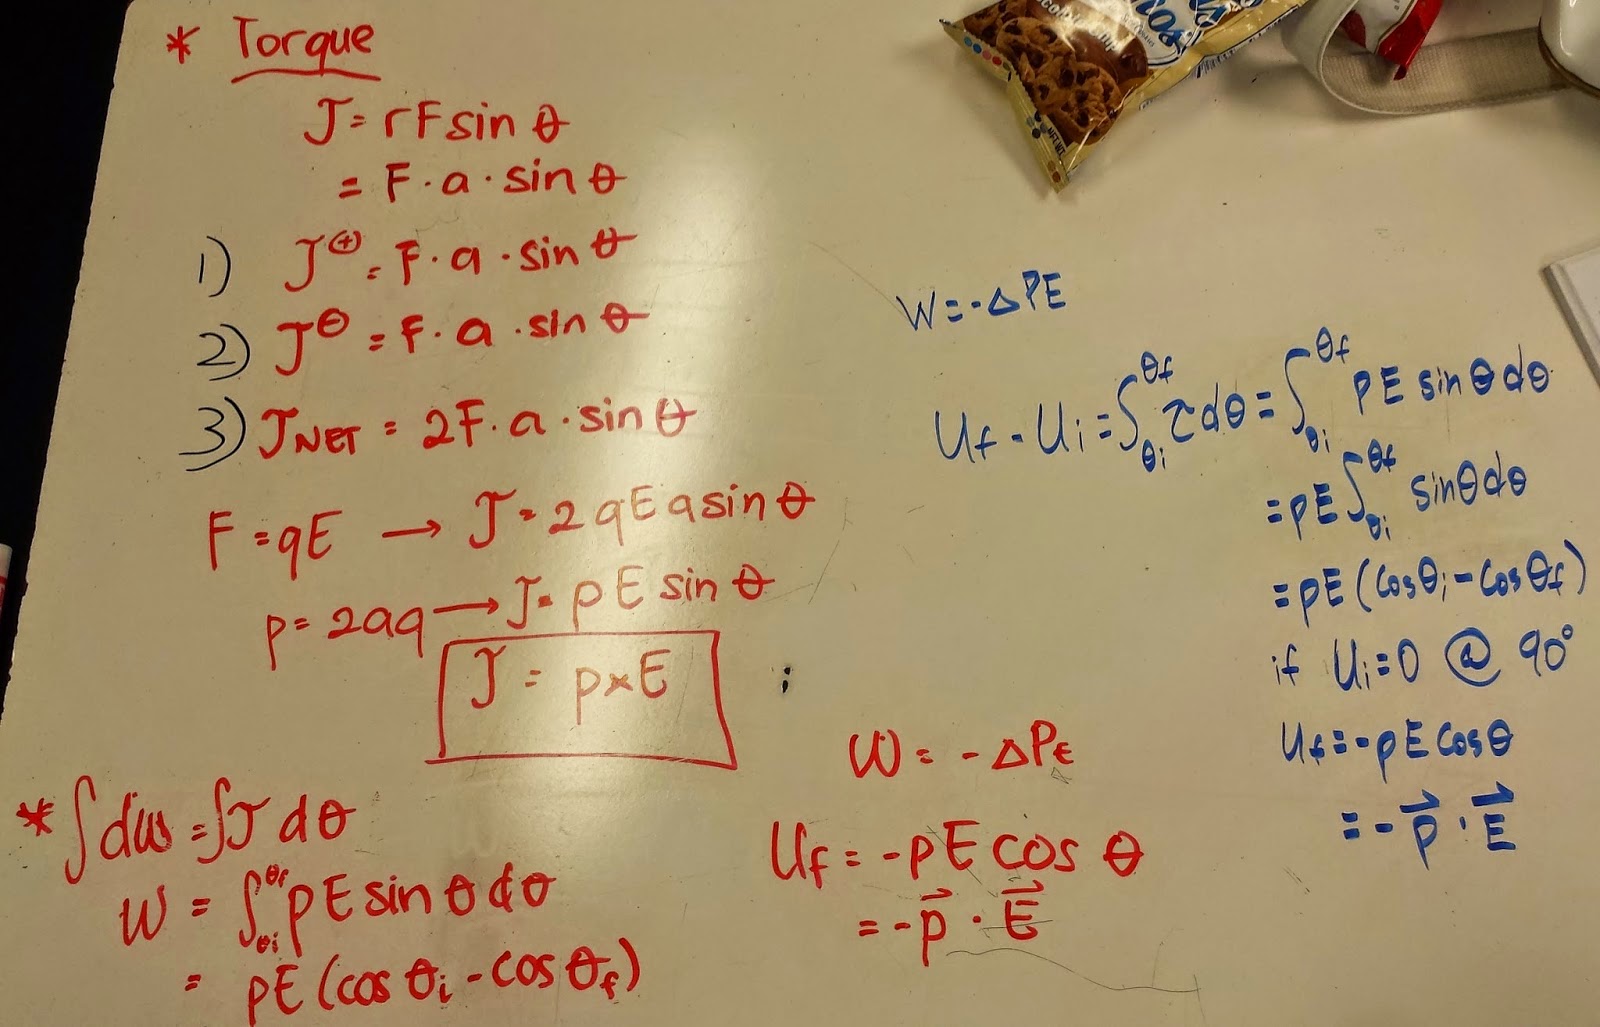 * Torque
τ = rF sin θ
= F · a · sin θ
1) τ⊕ = F · a · sin θ
2) τ⊖ = F · a · sin θ
3) τNET = 2F · a · sin θ
F = qE → τ = 2qEa sin θ
p = 2aq → τ = pE sin θ
τ = p×E
* ∫dw = ∫τ dθ
W = ∫θi^θf pE sin θ dθ
= pE (cos θi - cos θf)
W = -ΔPE
Uf = -pE cos θ
= -p⃗ · E⃗
W = -ΔPE
Uf - Ui = ∫θi^θf τ dθ = ∫θi^θf PE sin θ dθ
= pE ∫θi^θf sin θ dθ
= pE (cos θi - cos θf)
if Ui = 0 @ 90°
Uf = -pE cos θ
= -p⃗ · E⃗